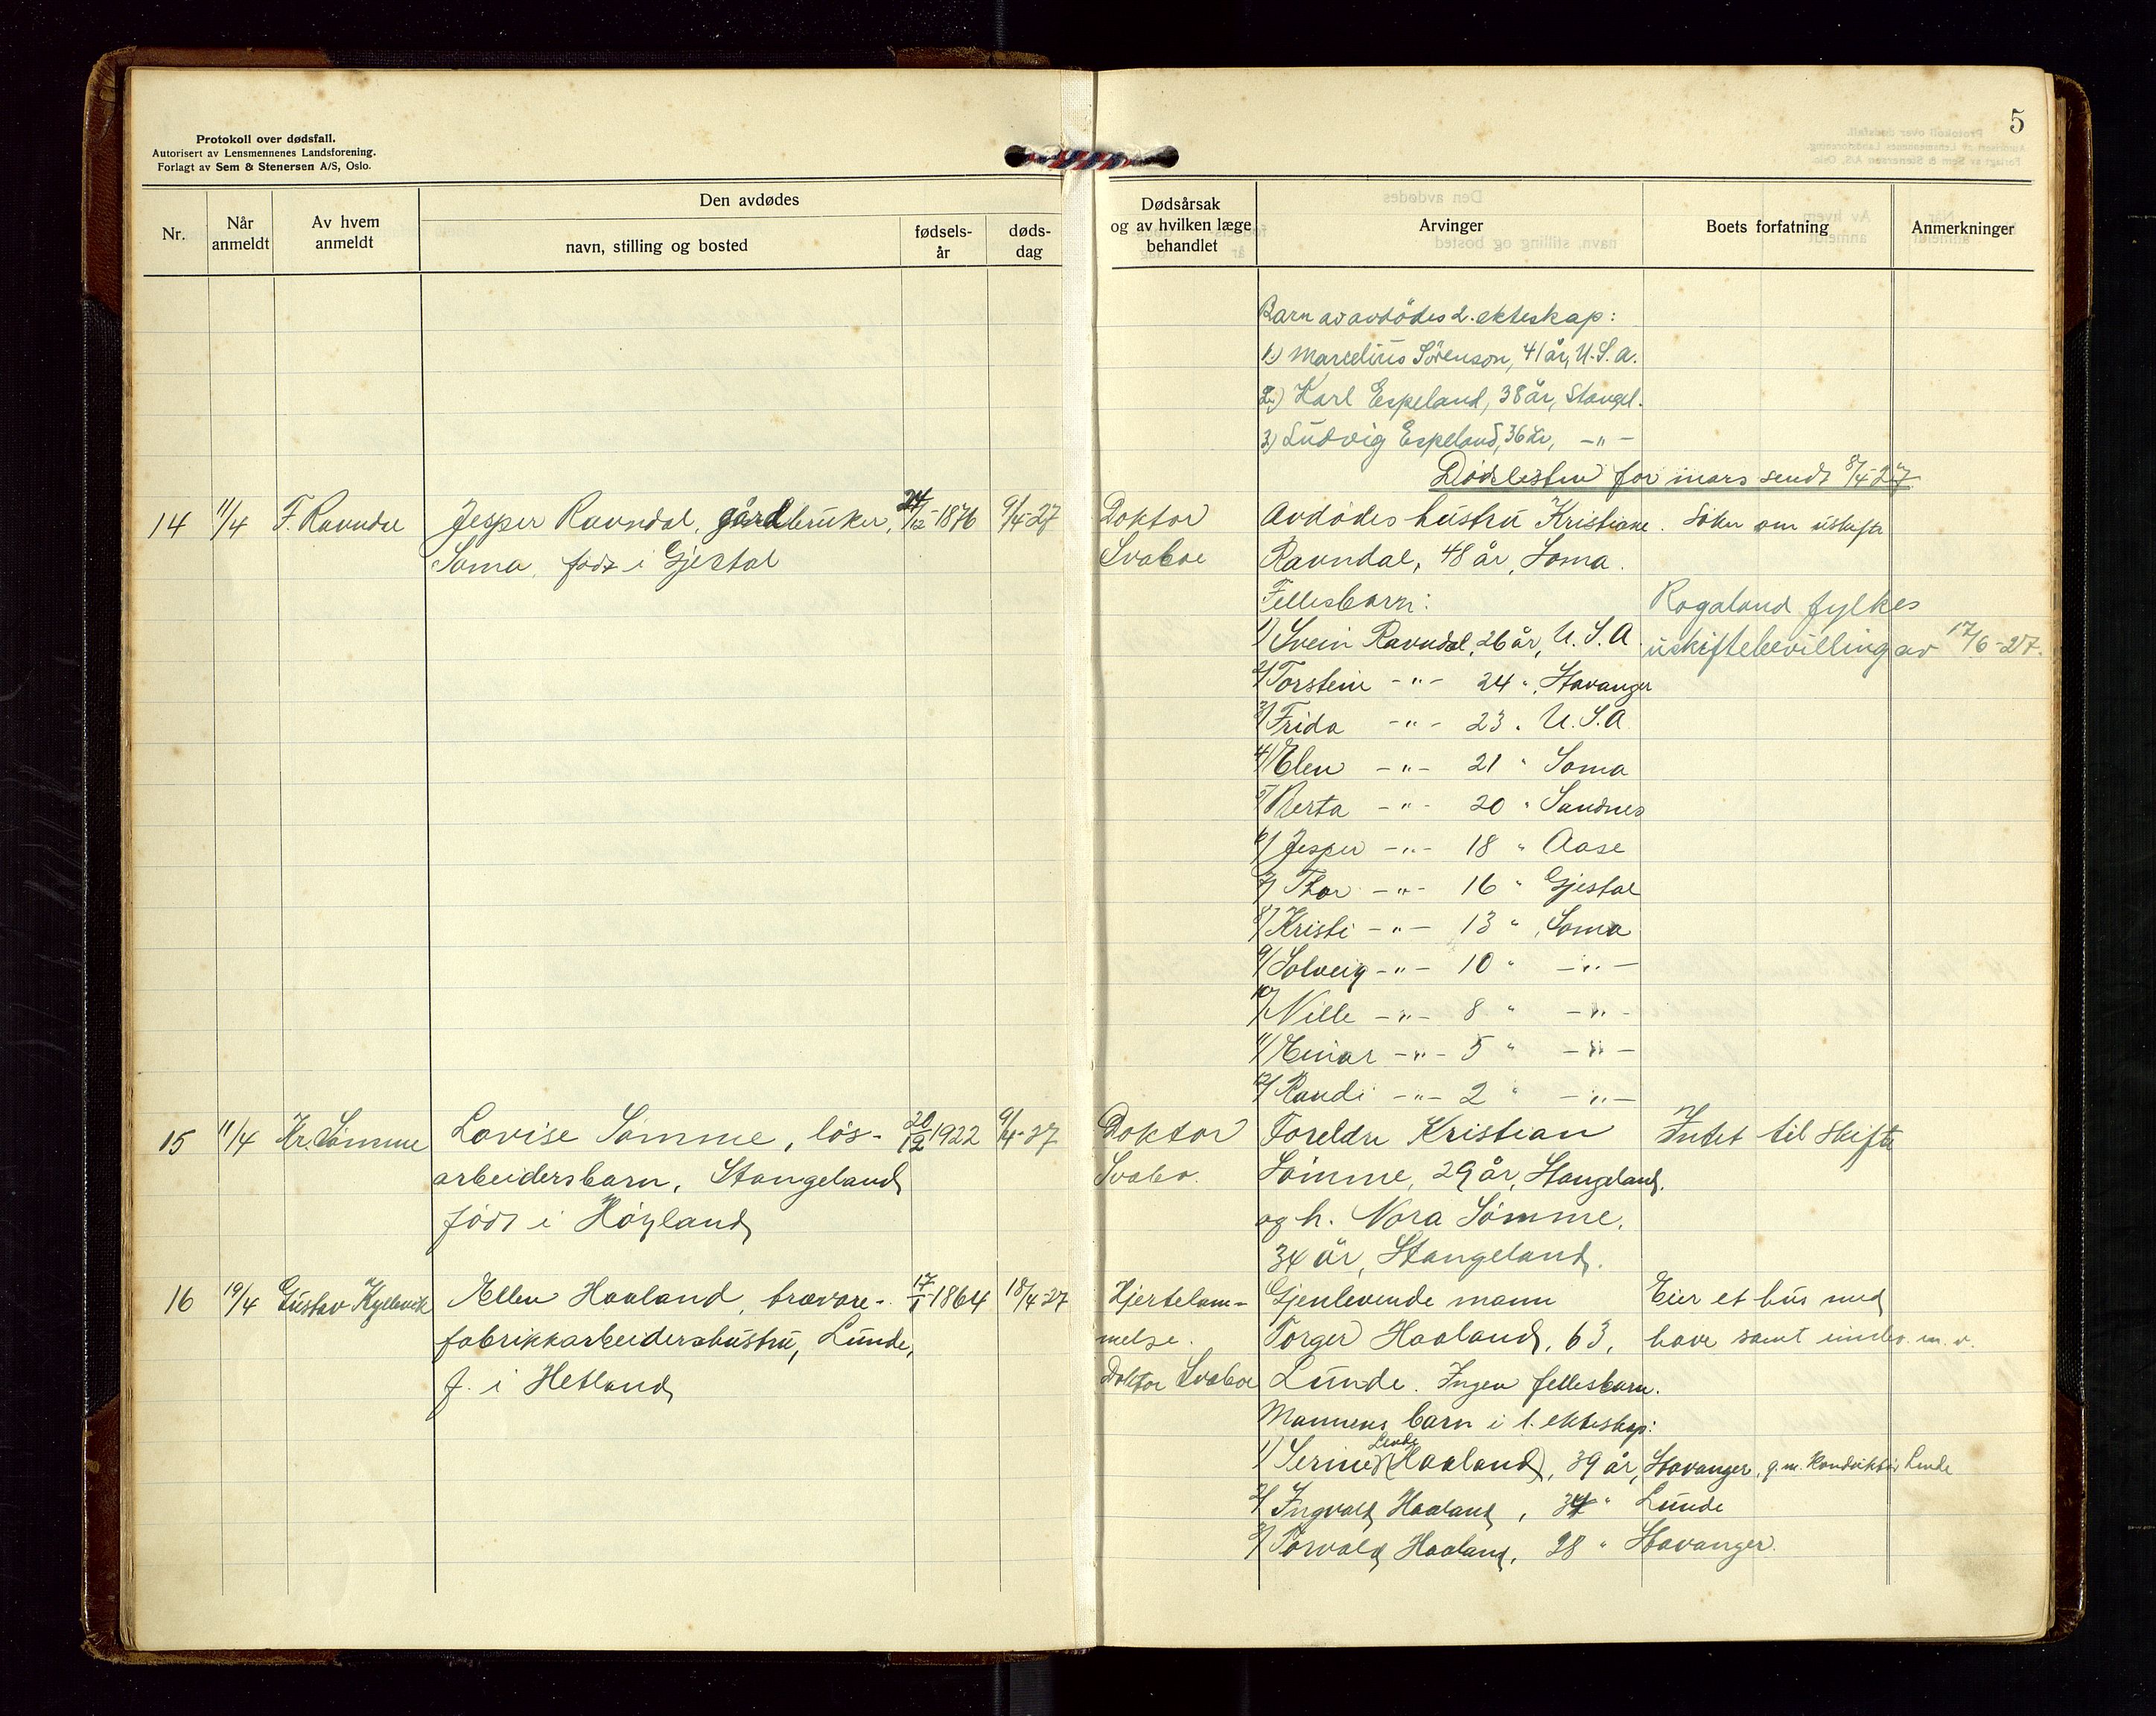 Protokoll over dødsfall.
Autorisert av Lensmennenes Landsforening.
Forlagt av Sem & Stenersen A/S, Oslo.
Nr.
Når anmeldt
Av hvem anmeldt
Den avdødes
navn, stilling og bosted
fødsels-år
døds-dag
14 11/4 F. Ravndal Jesper Ravndal, gårdbruker, 24/12-1876 9/4-27
Soma, født i Gjestal
15 11/4 Kr. Sømme Lovise Sømme, løs- 20/12 1922 9/4-27
arbeidersbarn, Stangeland
født i Høyland
16 19/4 Gustav Kyllevik Ellen Haaland, trævare- 17/1-1864 18/4-27
fabrikkarbeidershustru, Lunde,
f. i Hetland
5
Dødsårsak
og av hvilken læge
behandlet
Arvinger
Boets forfatning
Anmerkninger
Barn av avdødes 2. ekteskap:
1) Marcelius Sörenson, 41 år, U.S.A.
2) Karl Espeland, 38 år, Stangel.
3) Ludvig Espeland, 36 år, -"-
Dødslisten for mars sendt 8/4-27
Doktor Avdödes hustru Kristiane Söker om uskifte
Svaboe Ravndal, 48 år, Soma.
Fellesbarn: Rogaland fylkes
1/ Svein Ravndal, 26 år, U.S.A. uskiftebevilling av 17/6-27.
2/ Torstein -"- 24 ", Stavanger
3/ Frida -"- 23 " U.S.A
4/ Elen -"- 21 " Soma
5/ Berta -"- 20 " Sandnes
6/ Jesper -"- 18 " Aase
7/ Thor -"- 16 " Gjestal
8/ Kristi -"- 13 " Soma
9/ Solveig -"- 10 " -"-
10/ Nille -"- 8 " -"-
11/ Einar -"- 5 " -"-
12/ Randi -"- 2 " -"-
Doktor Foreldre Kristian Intet til skifte
Svabo. Sömme, 29 år, Stangeland,
og h. Nora Sömme,
34 år, Stangeland.
Hjertelam- Gjenlevende mann Eier et hus med
melse. Torger Haaland, 63, have samt innbo m.v.
Doktor Svaboe Lunde. Ingen fellesbarn.
Mannens barn i 1. ekteskap:
Lende
1/ Serine (Haaland), 39 år, Stavanger, g.m. Konduktör Lende
2/ Ingvald Haaland, 34 " Lunde
3/ Torvald Haaland, 28 " Stavanger.